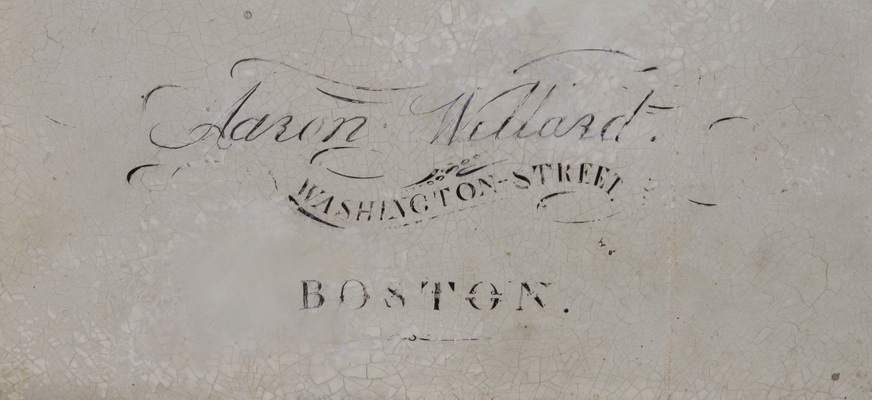 Aaron Willard.
WASHINGTON-STREET
BOSTON.